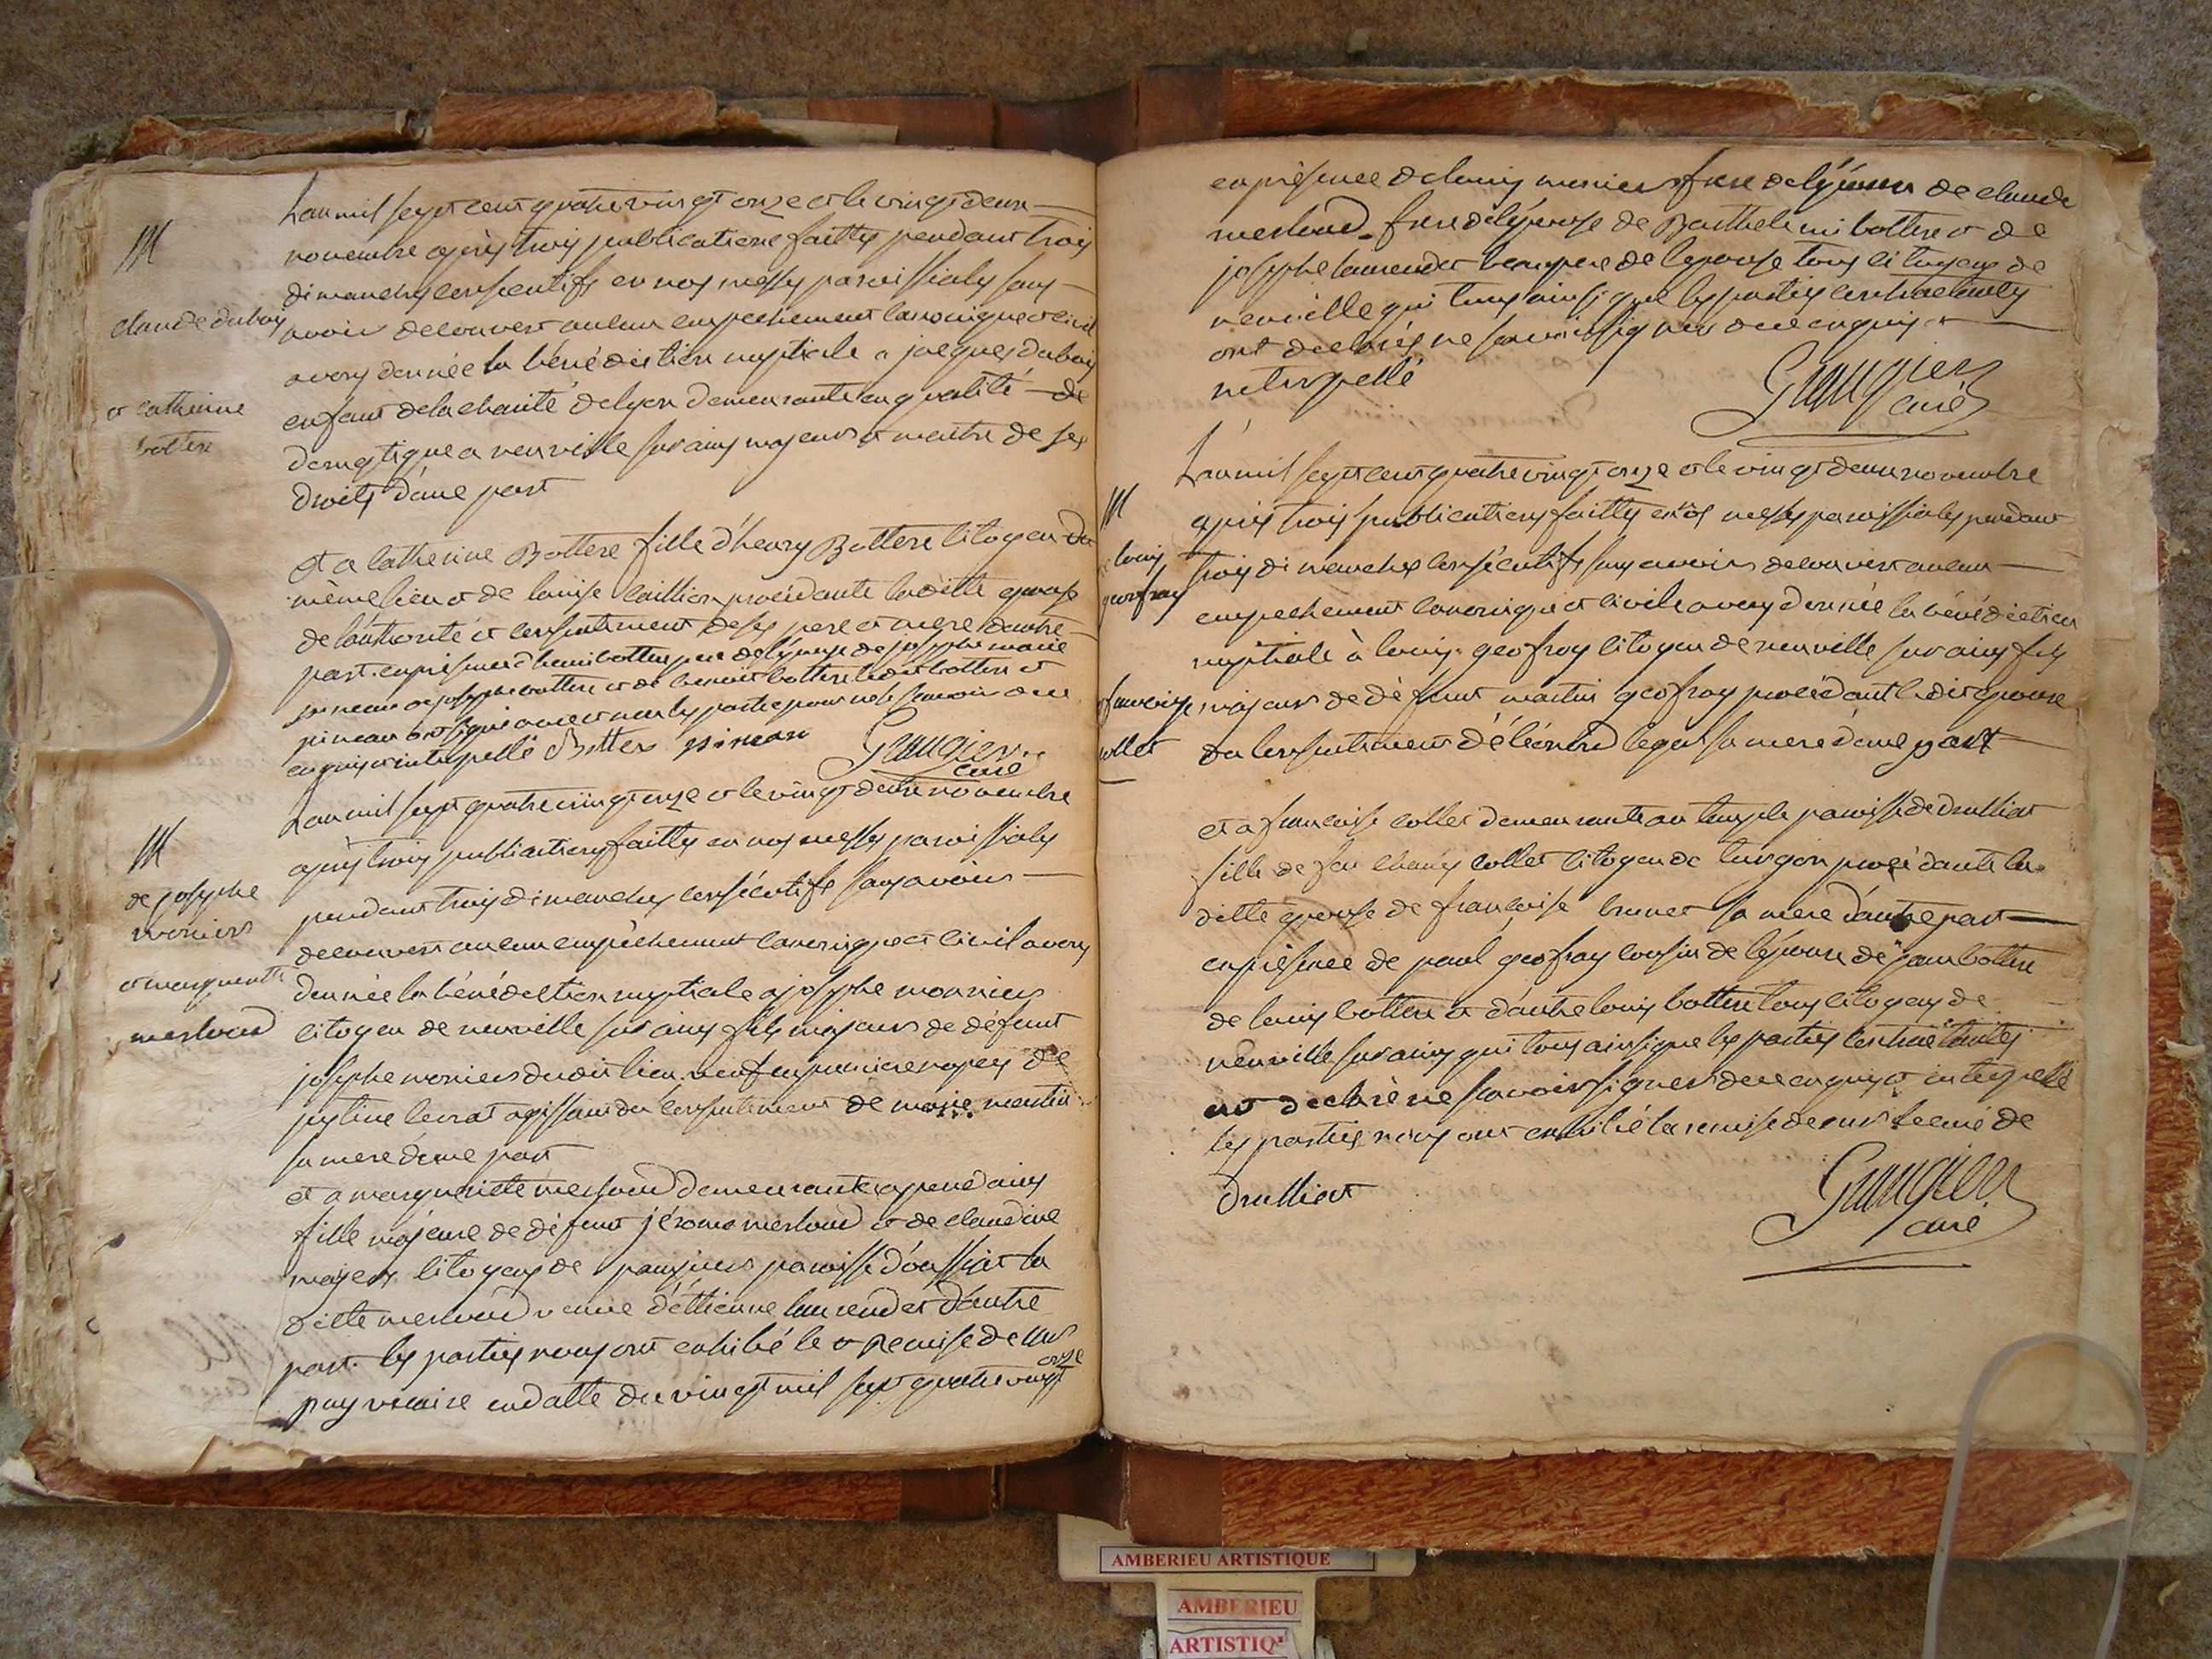 M
claude duboi
et catherine
bottere
L'an mil sept cent quatre vingt onze et le vingt deux
novembre après trois publications faittes pendant trois
dimanches consecutifs en nos messes paroissiales sans
avoir decouvert aucun empechement canonique et civil
avons donnée la bénédiction nuptiale a jacques duboi
enfant de la charité de lyon demeurante en qualité de
domestique a neuville sur ains majeur et maitre de ses
droits d'une part
et a Catherine Bottere fille d'henry Bottere citoyen du
même lieu et de louise caillion procédante laditte epouse
de l'authorité et consentiment de ses pere et mere d'autre
part. en présence d'henri bottere pere de l'épouse de josephe marie
pineau de josephe bottere et de benoit bottere ledit bottere et
pineau ont signé avec et non les parties pour ne le scavoir de ce
enquis et interpellé Botter pineau
Graugier
curé
M
de josephe
moniers
et marguerite
merloud
L'an mil sept quatre vingt onze et le vingt deux novembre
après trois publications faittes en nos messes paroissiales
pendant trois dimanches consécutifs sans avoir
decouvert aucun empêchement canonique et civil avons
donnée la bénédiction nuptiale a josephe monniers
citoyen de neuville sur ains fils majeur de défunt
josephe moniers dudit lieu veuf en premiere nopces de
justine levrat agissant du consentiment de marie martin
sa mere d'une part
et a marguerite merloud demeurante a pont d'ains
fille majeure de défunt jérome merloud et de claudine
citoyens de paroisse d'oussiat la
ditte merloud veuve d'ettienne laurendet d'autre
part. les parties nous ont exhibé le et remise de
vicaire en datte du vingt mil sept quatre vingt
onze
en présence de louis moniers frere de l'époux de claude
merloud frere de l'épouse de Barthelemi bottere et de
josephe laurendet beaupere de l'epouse tous citoyens de
neuville qui tous ainsi que les parties contractantes
ont declarés ne scavoir signer de ce enquis et
interpellé
Graugier
curé
M
louis
geofray
et francoise
collet
L'an mil sept cent quatre vingt onze et le vingt deux novembre
après trois publications faittes en nos messes paroissiales pendant
trois dimanches consécutifs sans avoir decouvert aucun
empechement canonique et civile avons donnée la bénédiction
nuptiale à louis geofray citoyen de neuville sur ains fils
majeur de défunt martin geofray procédant ledit epoux
du consentiment d'éléonord legat sa mere d'une part
et a francoise collet demeurante au temple paroisse de druilliat
fille de feu collet citoyen de turgon procédante la
ditte epouse de francoise brunet sa mere d'autre part
en présence de paul geofray cousin de l'époux de jean bottere
de louis bottere et d'autre louis bottere tous citoyens de
neuville sur ains qui tous ainsi que les parties contractantes
ont declaré ne scavoir signer de ce enquis et interpellé
les parties nous ont exhibé la remise de mr le curé de
druilliat
Graugier
curé
AMBERIEU ARTISTIQUE
AMBERIEU
ARTISTIQ